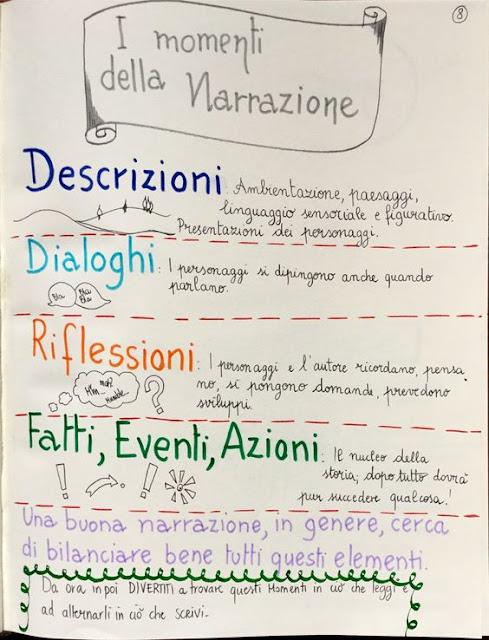 8
I momenti
della Narrazione
Descrizioni: Ambientazione, paesaggi,
linguaggio sensoriale e figurativo.
Presentazioni dei personaggi.
Dialoghi: I personaggi si dipingono anche quando
parlano.
Bla Bla Bla
Riflessioni: I personaggi e l'autore ricordano, pensa
no, si pongono domande, prevedono
sviluppi.
Fatti, Eventi, Azioni: Il nucleo della
storia; dopo tutto dovrà
pur succedere qualcosa!
Una buona narrazione, in genere, cerca
di bilanciare bene tutti questi elementi.
Da ora in poi DIVERTITI a trovare questi Momenti in ciò che leggi e
ad alternarli in ciò che scrivi.